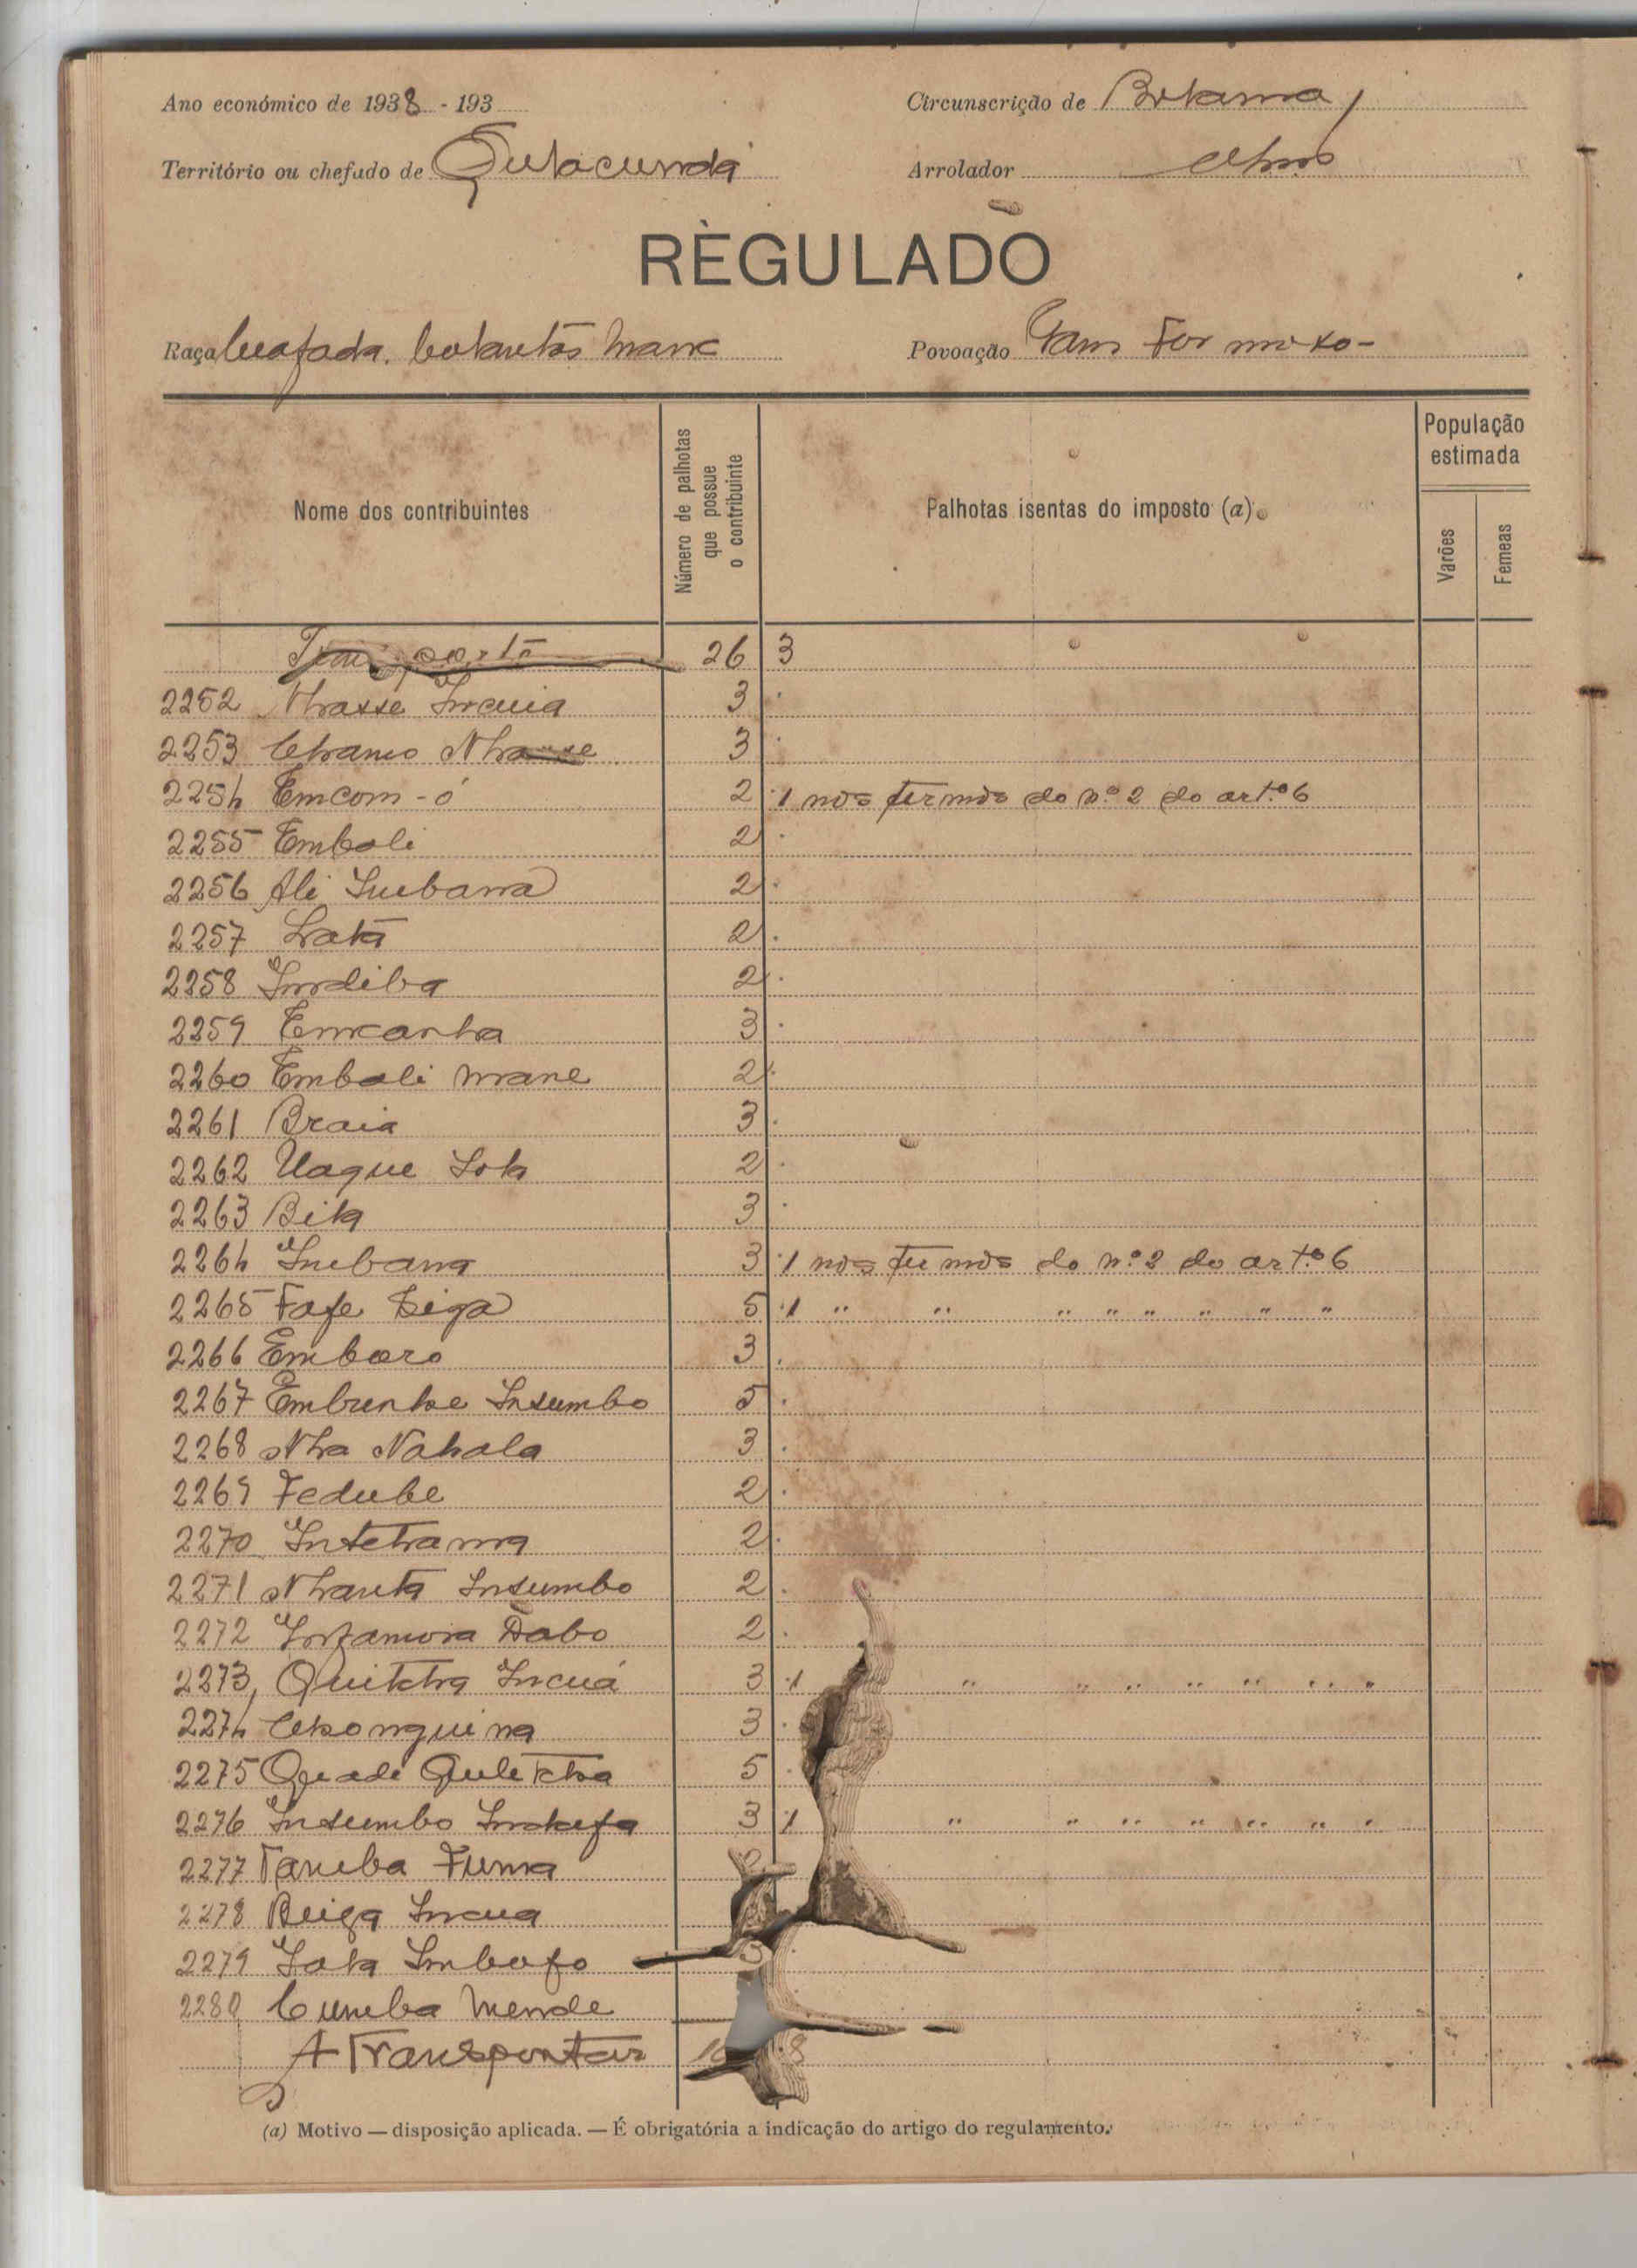 Ano económico de 1938 - 193
Circunscrição de Bolama,
Território ou chefado de Qulacunda
Arrolador
RÈGULADO
Raça Beafada. balantas mane
Povoação Gam Formoso -
Nome dos contribuintes
Número de palhotas que possue o contribuinte
Palhotas isentas do imposto (a)
População estimada
Varões
Femeas
Transporte 26 3
2252 Nhasse Incuia 3
2253 Chamo Nhasse 3
2254 Emcom-ó 2 1 nos termos do nº 2 do artº 6
2255 Embali 2
2256 Ali Subana 2
2257 Latá 2
2258 Indiba 2
2259 Emcanha 3
2260 Embali mane 2
2261 Braia 3
2262 Uaque Sok 2
2263 Bita 3
2264 Inebana 3 1 nos termos do nº 2 do artº 6
2265 Fafe Biga 5 1 " " " " " " " "
2266 Embaro 3
2267 Embunhe Insumbo 5
2268 Nha Nahala 3
2269 Fedube 2
2270 Intchama 2
2271 Nhanta Insumbo 2
2272 Infamora Dabo 2
2273 Quitcha Incuá 3 1 " " " " " " "
2274 Chonguina 3
2275 Quade Quletcha 5
2276 Insumbo 3 1 " " " " " " "
2277 Tamba Fuma
2278 Beiga Incua
2279 Lata Imbafo 3
2280 Cumba Mende
A Transportar 8
(a) Motivo — disposição aplicada. — É obrigatória a indicação do artigo do regulamento.